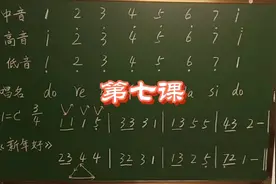 中音 1 2 3 4 5 6 7 i
高音 i 2 3 4 5 6 7
低音 1 2 3 4 5 6 7 1
唱名 do re si do
第七课
1=C 3/4 1 1 1 5 | 3 3 3 1 | 1 3 5 5 | 4 3 2 -
《新年好》
2 3 4 4 | 3 2 3 1 | 1 3 2 5 | 7 2 1 -